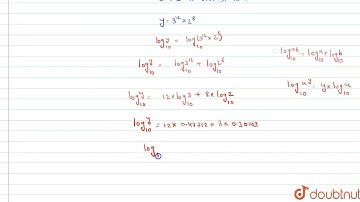 y = 3^12 × 2^8
log_10 y = log_10 (3^12 × 2^8)
log_10 y = log_10 3^12 + log_10 2^8
∵ log_10 ab = log_10 a + log_10 b
log_10 x^y = y × log_10 x
log_10 y = 12 × log_10 3 + 8 × log_10 2
log_10 y = 12 × 0.47712 + 8 × 0.30103
log
doubtnut